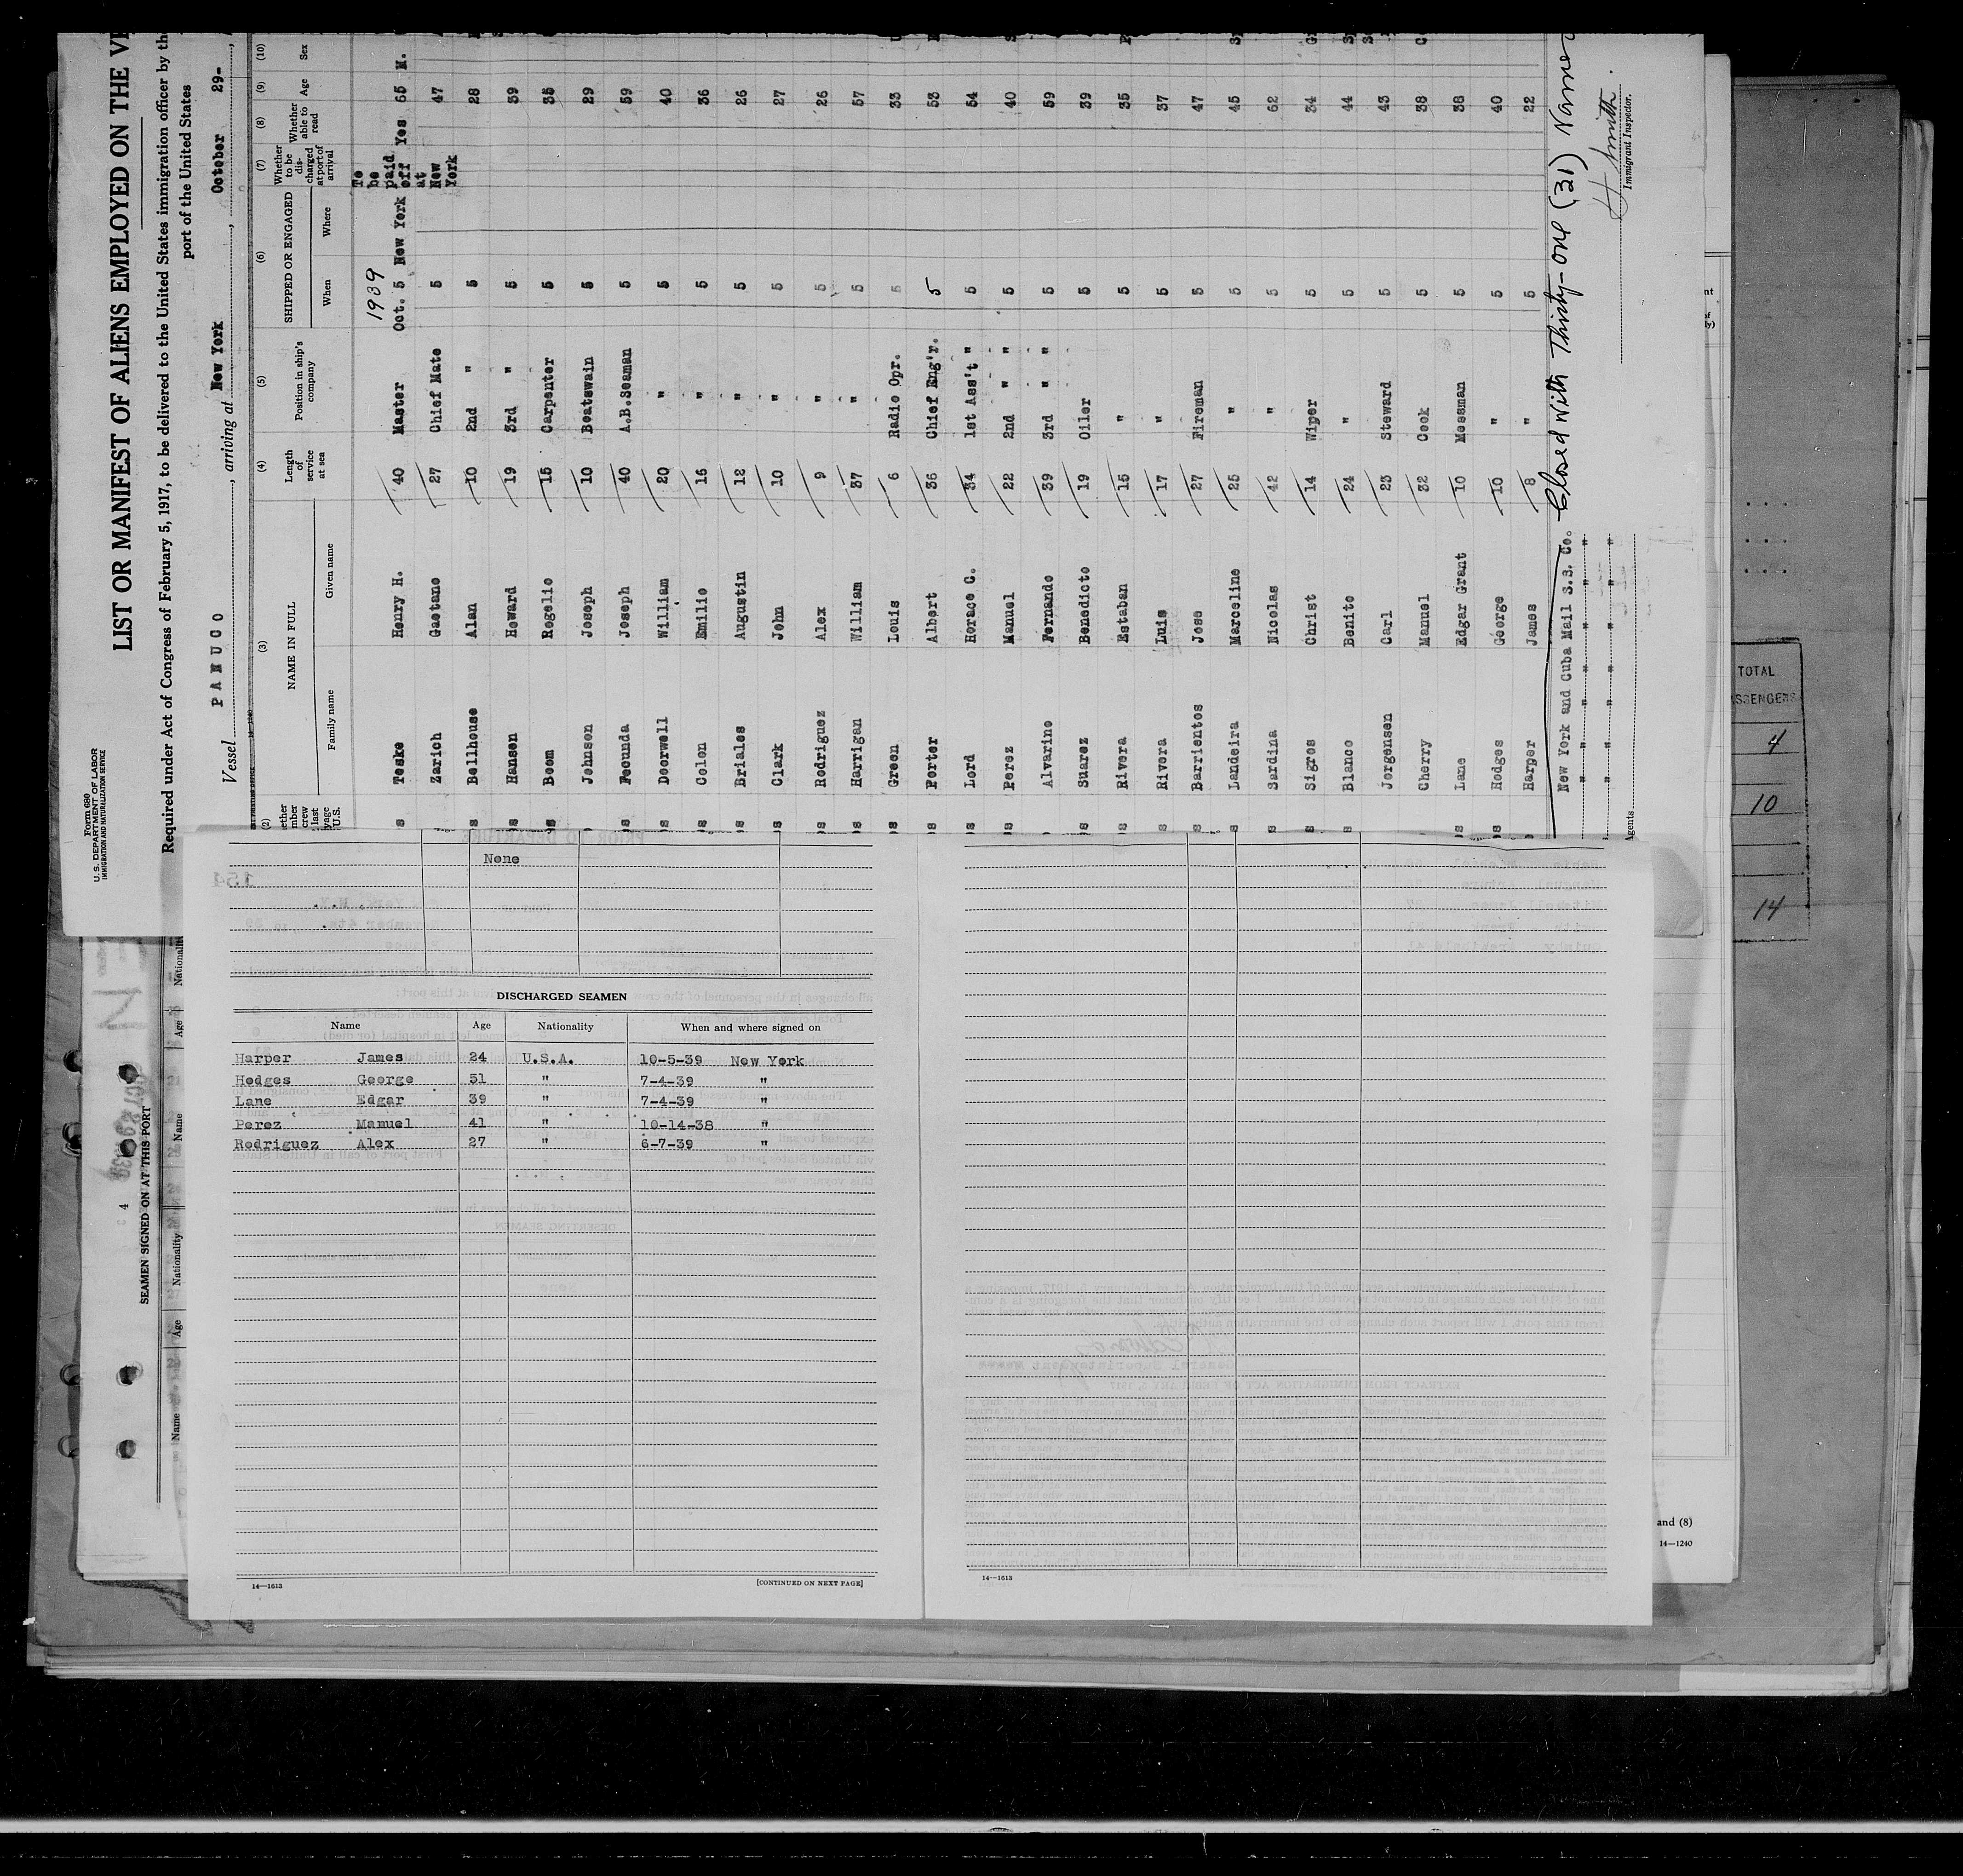 Form 680
U. S. DEPARTMENT OF LABOR
IMMIGRATION AND NATURALIZATION SERVICE
LIST OR MANIFEST OF ALIENS EMPLOYED ON THE
Required under Act of Congress of February 5, 1917, to be delivered to the United States immigration officer by the
port of the United States
Vessel PANUCO, arriving at New York, October 29-,
(2) (3) (4) (5) (6) (7) (8) (9) (10)
NAME IN FULL
Family name Given name
Length of service at sea
Position in ship's company
SHIPPED OR ENGAGED
When Where
Whether to be discharged at port of arrival
Whether able to read
Age
Sex
1939
To be paid off at New York
Teske Henry H. 40 Master Oct. 5 New York Yes 65 M.
Zarich Gaetano 27 Chief Mate 5 47
Bellhouse Alan 10 2nd " 5 28
Hansen Howard 19 3rd " 5 39
Boom Rogelio 15 Carpenter 5 35
Johnson Joseph 10 Boatswain 5 29
Fecunda Joseph 40 A.B.Seaman 5 59
Doorwell William 20 " 5 40
Colon Emilio 16 " 5 36
Briales Augustin 12 " 5 26
Clark John 10 " 5 27
Rodriguez Alex 9 " 5 26
Harrigan William 37 " 5 57
Green Louis 6 Radio Opr. 5 33
Porter Albert 36 Chief Eng'r. 5 53
Lord Horace C. 34 1st Ass't " 5 54
Perez Manuel 22 2nd " " 5 40
Alvarino Fernando 39 3rd " " 5 59
Suarez Benedicto 19 Oiler 5 39
Rivera Estaban 15 " 5 35
Rivera Luis 17 " 5 37
Barrientos Jose 27 Fireman 5 47
Landeira Marceline 25 " 5 45
Sardina Nicolas 42 " 5 62
Sigros Christ 14 Wiper 5 34
Blanco Benito 24 " 5 44
Jorgensen Carl 23 Steward 5 43
Cherry Manuel 32 Cook 5 38
Lane Edgar Grant 10 Messman 5 38
Hodges George 10 " 5 40
Harper James 8 " 5 22
New York and Cuba Mail S.S. Co.
Closed with Thirty-one (31) Names
H Smith.
Immigrant Inspector.
Agents
None
DISCHARGED SEAMEN
Name Age Nationality When and where signed on
Harper James 24 U.S.A. 10-5-39 New York
Hodges George 51 " 7-4-39 "
Lane Edgar 39 " 7-4-39 "
Perez Manuel 41 " 10-14-38 "
Rodriguez Alex 27 " 6-7-39 "
14—1613
[CONTINUED ON NEXT PAGE]
14—1613
4
SEAMEN SIGNED ON AT THIS PORT
Name Age Nationality Name Age Nationality
TOTAL
4
10
14
and (8)
14—1240